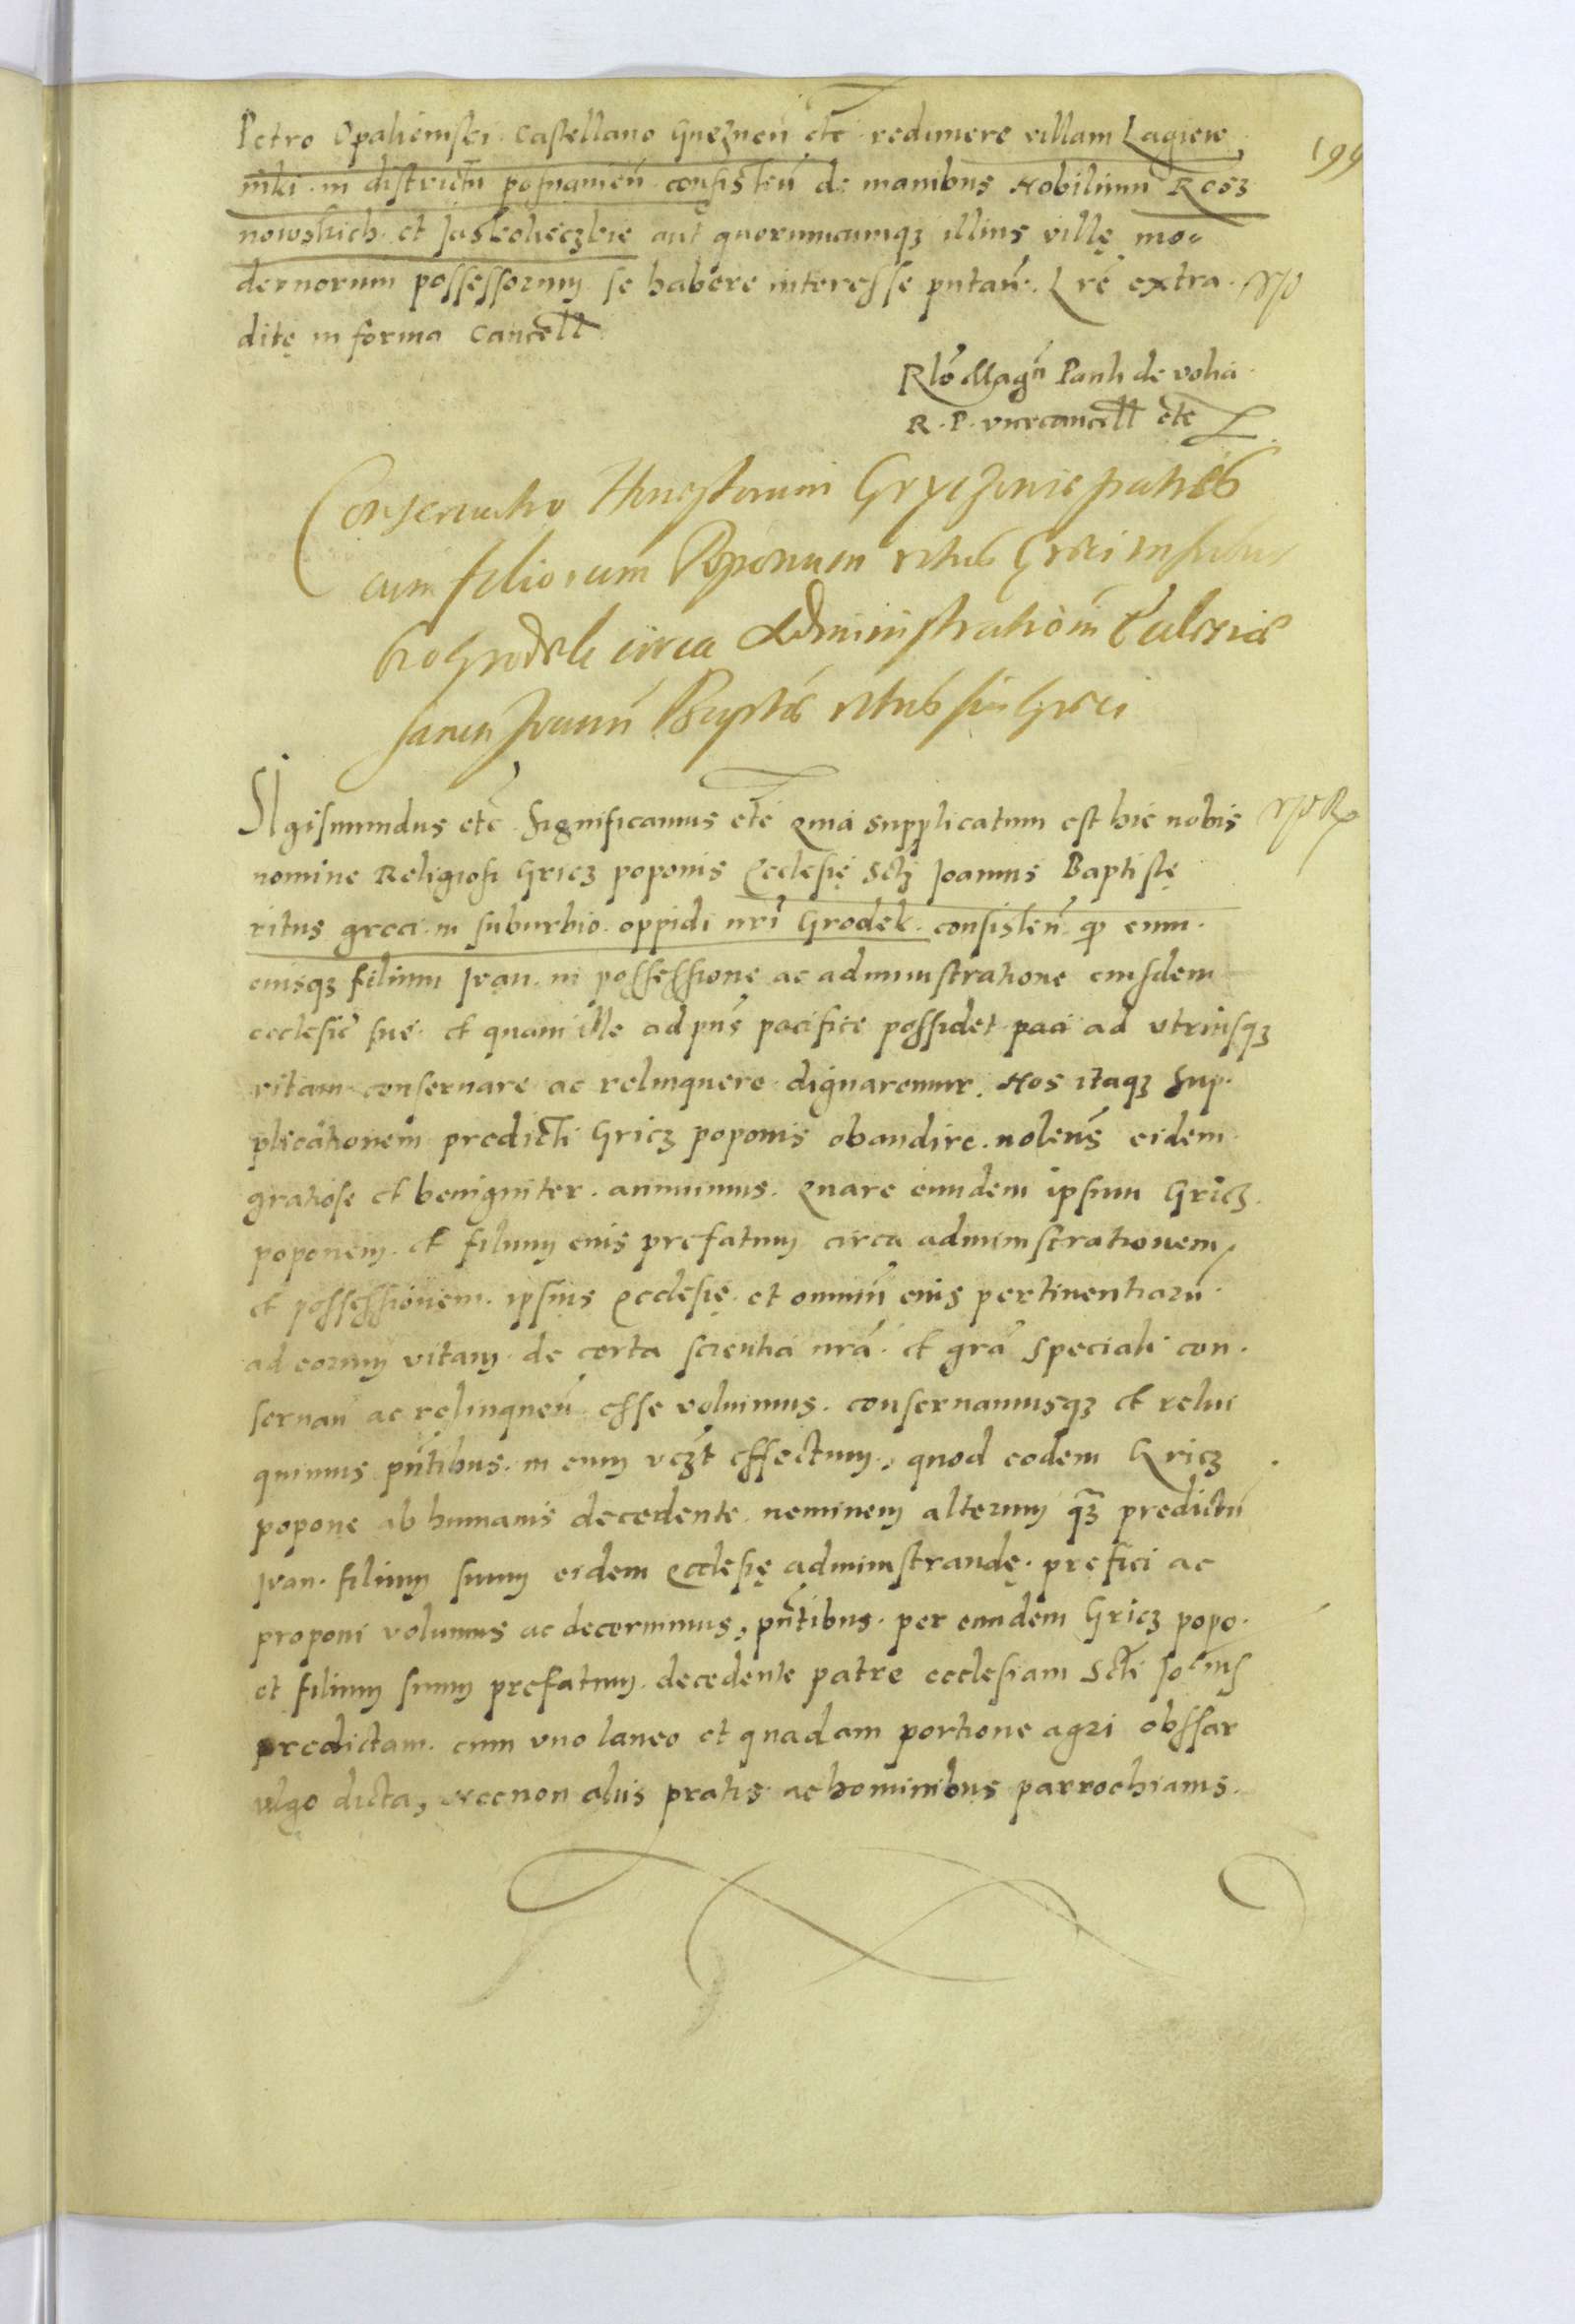 Petro Opalienisci Castellano Gneznen̄ etc̄ redimere villam Lagiew
199
niki in districtu posnanien̄ consisten̄ de manibus Nobilium Rosz
nowskich et Jaskoleczkie aut quorumcumqȝ illius villę mo
dernorum possessorum se habere interesse putan̄. Lrē extra
ditę in forma Cancell
Rlo Magn̄ Pauli de volia
R. P. vicecancell etc
Conservatio Honestorum Gryczonis patris
cum filio suum Poponum ritus Greci in suburbio
Grodek circa Administrationem Ecclesiae
sancti Joannis Baptistae ritus sui Greci
Sigismundus etc. Significamus etc̄ Quia supplicatum est hic nobis
nomine Religiosi Gricz poponis Ecclesię Scti Joannis Baptistę
ritus greci in suburbio oppidi nrī Grodek consisten̄ qȝ eum
eiusqȝ filium Ivan in possessione ac administratione eiusdem
ecclesie sue et quam ille ad pn̄s pacifice possidet paci ad vtriusqȝ
vitam conservare ac relinquere dignaremur. Nos itaqȝ sup
plicationem predicti Gricz poponis obaudire nolen̄s eidem
gratiose et benigniter annuimus. Quare eundem ipsum Gricz
poponem et filium eius prefatum circa administrationem
et possessionem ipsius Ecclesię et omniū eius pertinentiarū
ad eorum vitam de certa scientia nrā et grā speciali con
servan̄ ac relinquen̄ esse volumus. conservamusqȝ et relin
quimus pn̄tibus in eum vczt effectum, quod eodem Gricz
popone ab humanis decedente neminem alterum qȝ predictū
Ivan filium suum eidem Ecclesię administrandę prefici ac
proponi volumus ac decernimus, pn̄tibus per eundem Gricz popo.
et filium suum prefatum decedente patre ecclesiam Scti Joānis
predictam cum vno laneo et quadam portione agri obssar
vlgo dicta, necnon aliis pratis ac hominibus parrochianis